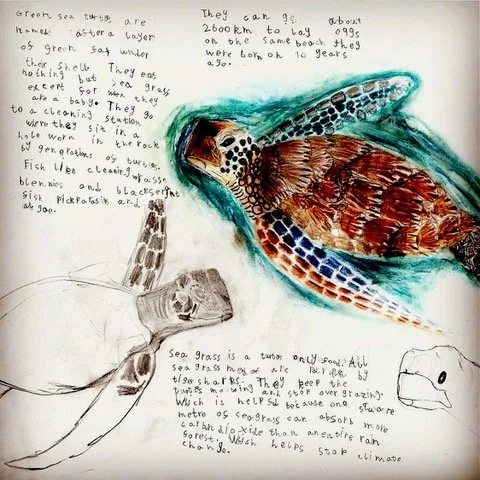 Green sea turtles are
named after a layer
of green fat under
their shell. They eat
nothing but sea grass
exept for when they
are a baby. They go
to a cleaning station
where they sit in a
hole worn in the rock
by generations of turtles.
Fish like cleaning wrasse
blennies and
fish pick parasites and
algae.
They can go about
2600km to lay eggs
on the same beach they
were born on 70 years
ago.
Sea grass is a turtles only food. All
sea grass are by
tiger sharks. They keep the
turtles moving and stop over grazing.
Which is helpful because one sware
metre of seagrass can absorb more
carbon dioxide than an entire rain
forest. Which helps stop climate
change.